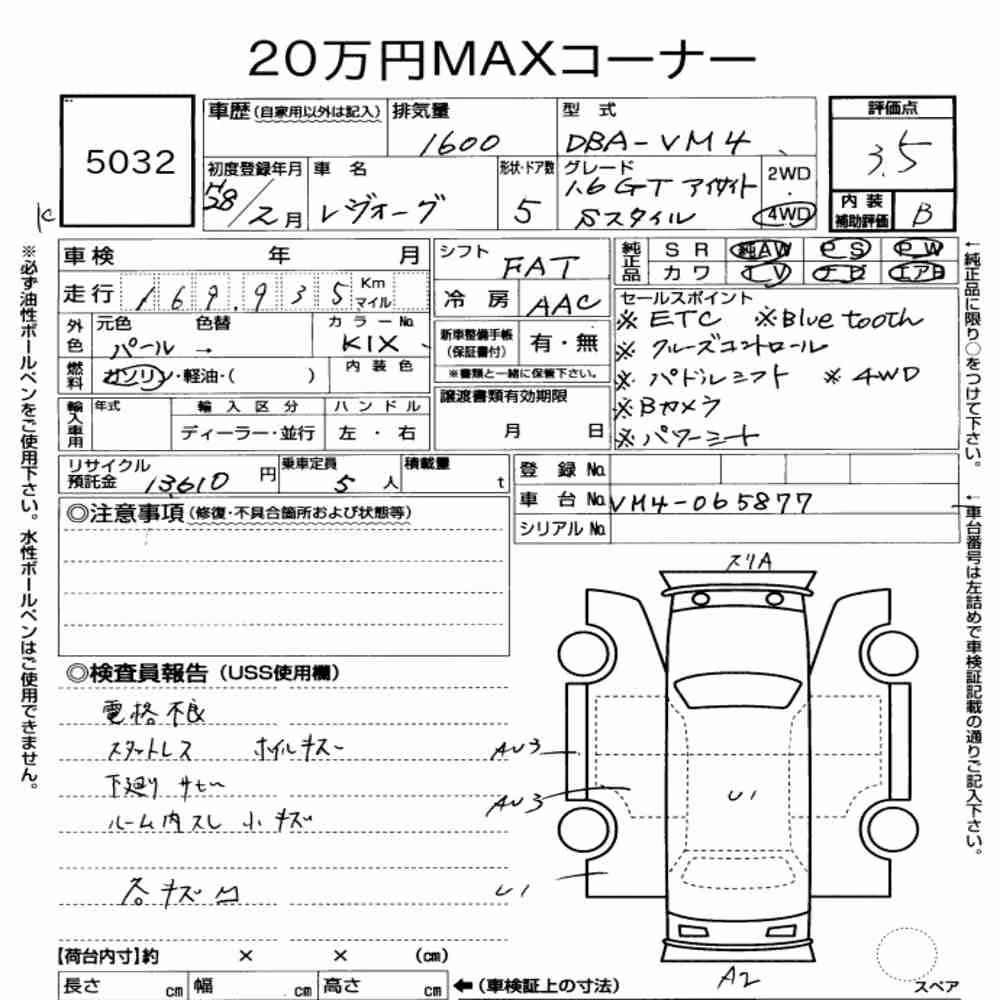 20万円MAXコーナー
5032
車歴(自家用以外は記入)
排気量
1600
型式
DBA-VM4
評価点
3.5
初度登録年月
2月
車名
レヴォーグ
形状・ドア数
5
グレード
1.6GT アイサイト
Sスタイル
2WD
・
4WD
内装
補助評価
B
K
車検 年 月
走行 169,935 Km マイル
外色
元色 色替
パール →
カラーNo.
K1X
燃料
ガソリン・軽油・( )
内装色
シフト
FAT
冷房
AAC
新車整備手帳
(保証書付)
有・無
※書類と一緒に保管下さい。
純正品
SR 純AW PS PW
カワ TV ナビ エアB
セールスポイント
※ ETC ※Bluetooth
※ クルーズコントロール
※ パドルシフト ※ 4WD
※Bカメラ
※パワーシート
輸入車用
年式
輸入区分
ディーラー・並行
ハンドル
左・右
譲渡書類有効期限
月 日
リサイクル
預託金
13,610 円
乗車定員
5 人
積載量
t
登録No.
車台No. VM4-065877
シリアルNo.
◎注意事項(修復・不具合箇所および状態等)
◎検査員報告(USS使用欄)
電格不良
スタットレス ホイルキズ
下廻り サビ
ルーム内スレ 小キズ
各キズ凹
スリA
AU3
AU3
U1
U1
A2
【荷台内寸】約 × × (cm)
長さ cm 幅 cm 高さ cm
←(車検証上の寸法)
スペア
※必ず油性ボールペンをご使用下さい。水性ボールペンはご使用できません。
←純正品に限り○をつけて下さい。
←車台番号は左詰めで車検証記載の通りご記入下さい。